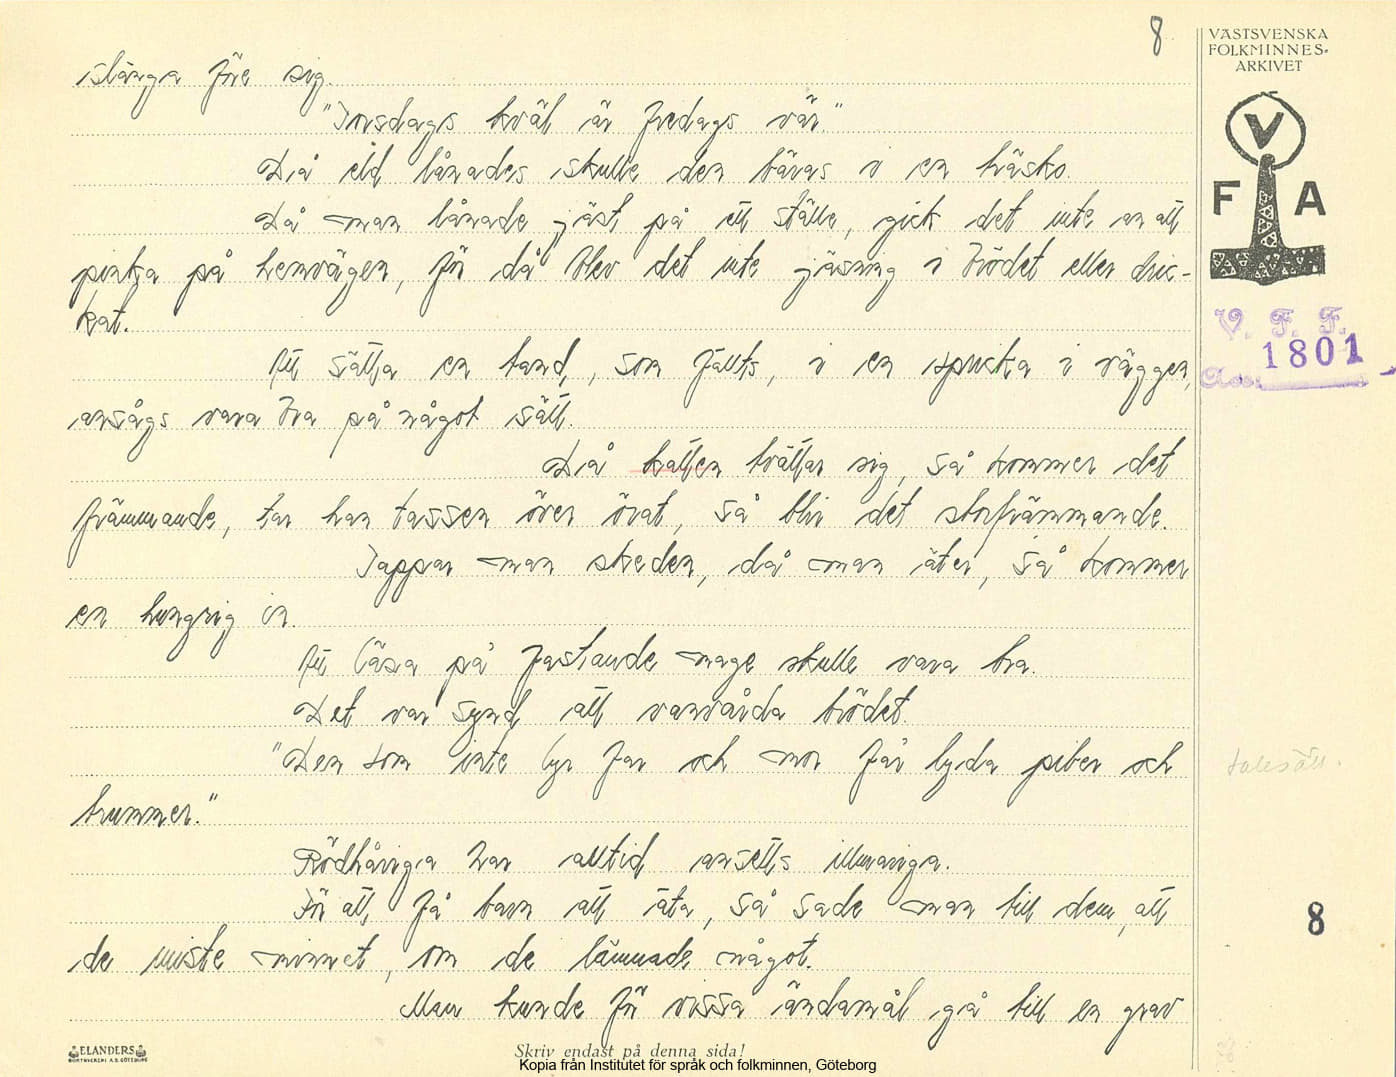 8
VÄSTSVENSKA
FOLKMINNES-
ARKIVET
V
F A
V. F. F.
1801
Acc.
slänga före sig.
"Torsdags kväl är fredags vär"
Då eld lånades skulle den bäras i en träsko.
Då man lånade jäst på ett ställe, gick det inte an att
pinka på hemvägen, för då blev det inte jäsning i brödet eller dric-
kat.
Att sätta en tand, som fällts, i en spricka i väggen,
ansågs vara bra på något sätt.
Då katten tvättar sig, så kommer det
främmande, tar han tassen över örat, så blir det storfrämmande.
Tappar man skeden, då man äter, så kommer
en hungrig in.
Att läsa på fastande mage skulle vara bra.
Det var synd att vanvårda brödet.
"Den som inte lyr far och mor får lyda piber och
trummer."
talesätt.
Rödhåriga har alltid ansetts illmariga.
För att få barn att äta, så sade man till dem, att
de miste minnet, om de lämnade något.
8
Man kunde för vissa ändamål gå till en grav
ELANDERS
BOKTRYCKERI A.B. GÖTEBORG
Skriv endast på denna sida!
Kopia från Institutet för språk och folkminnen, Göteborg